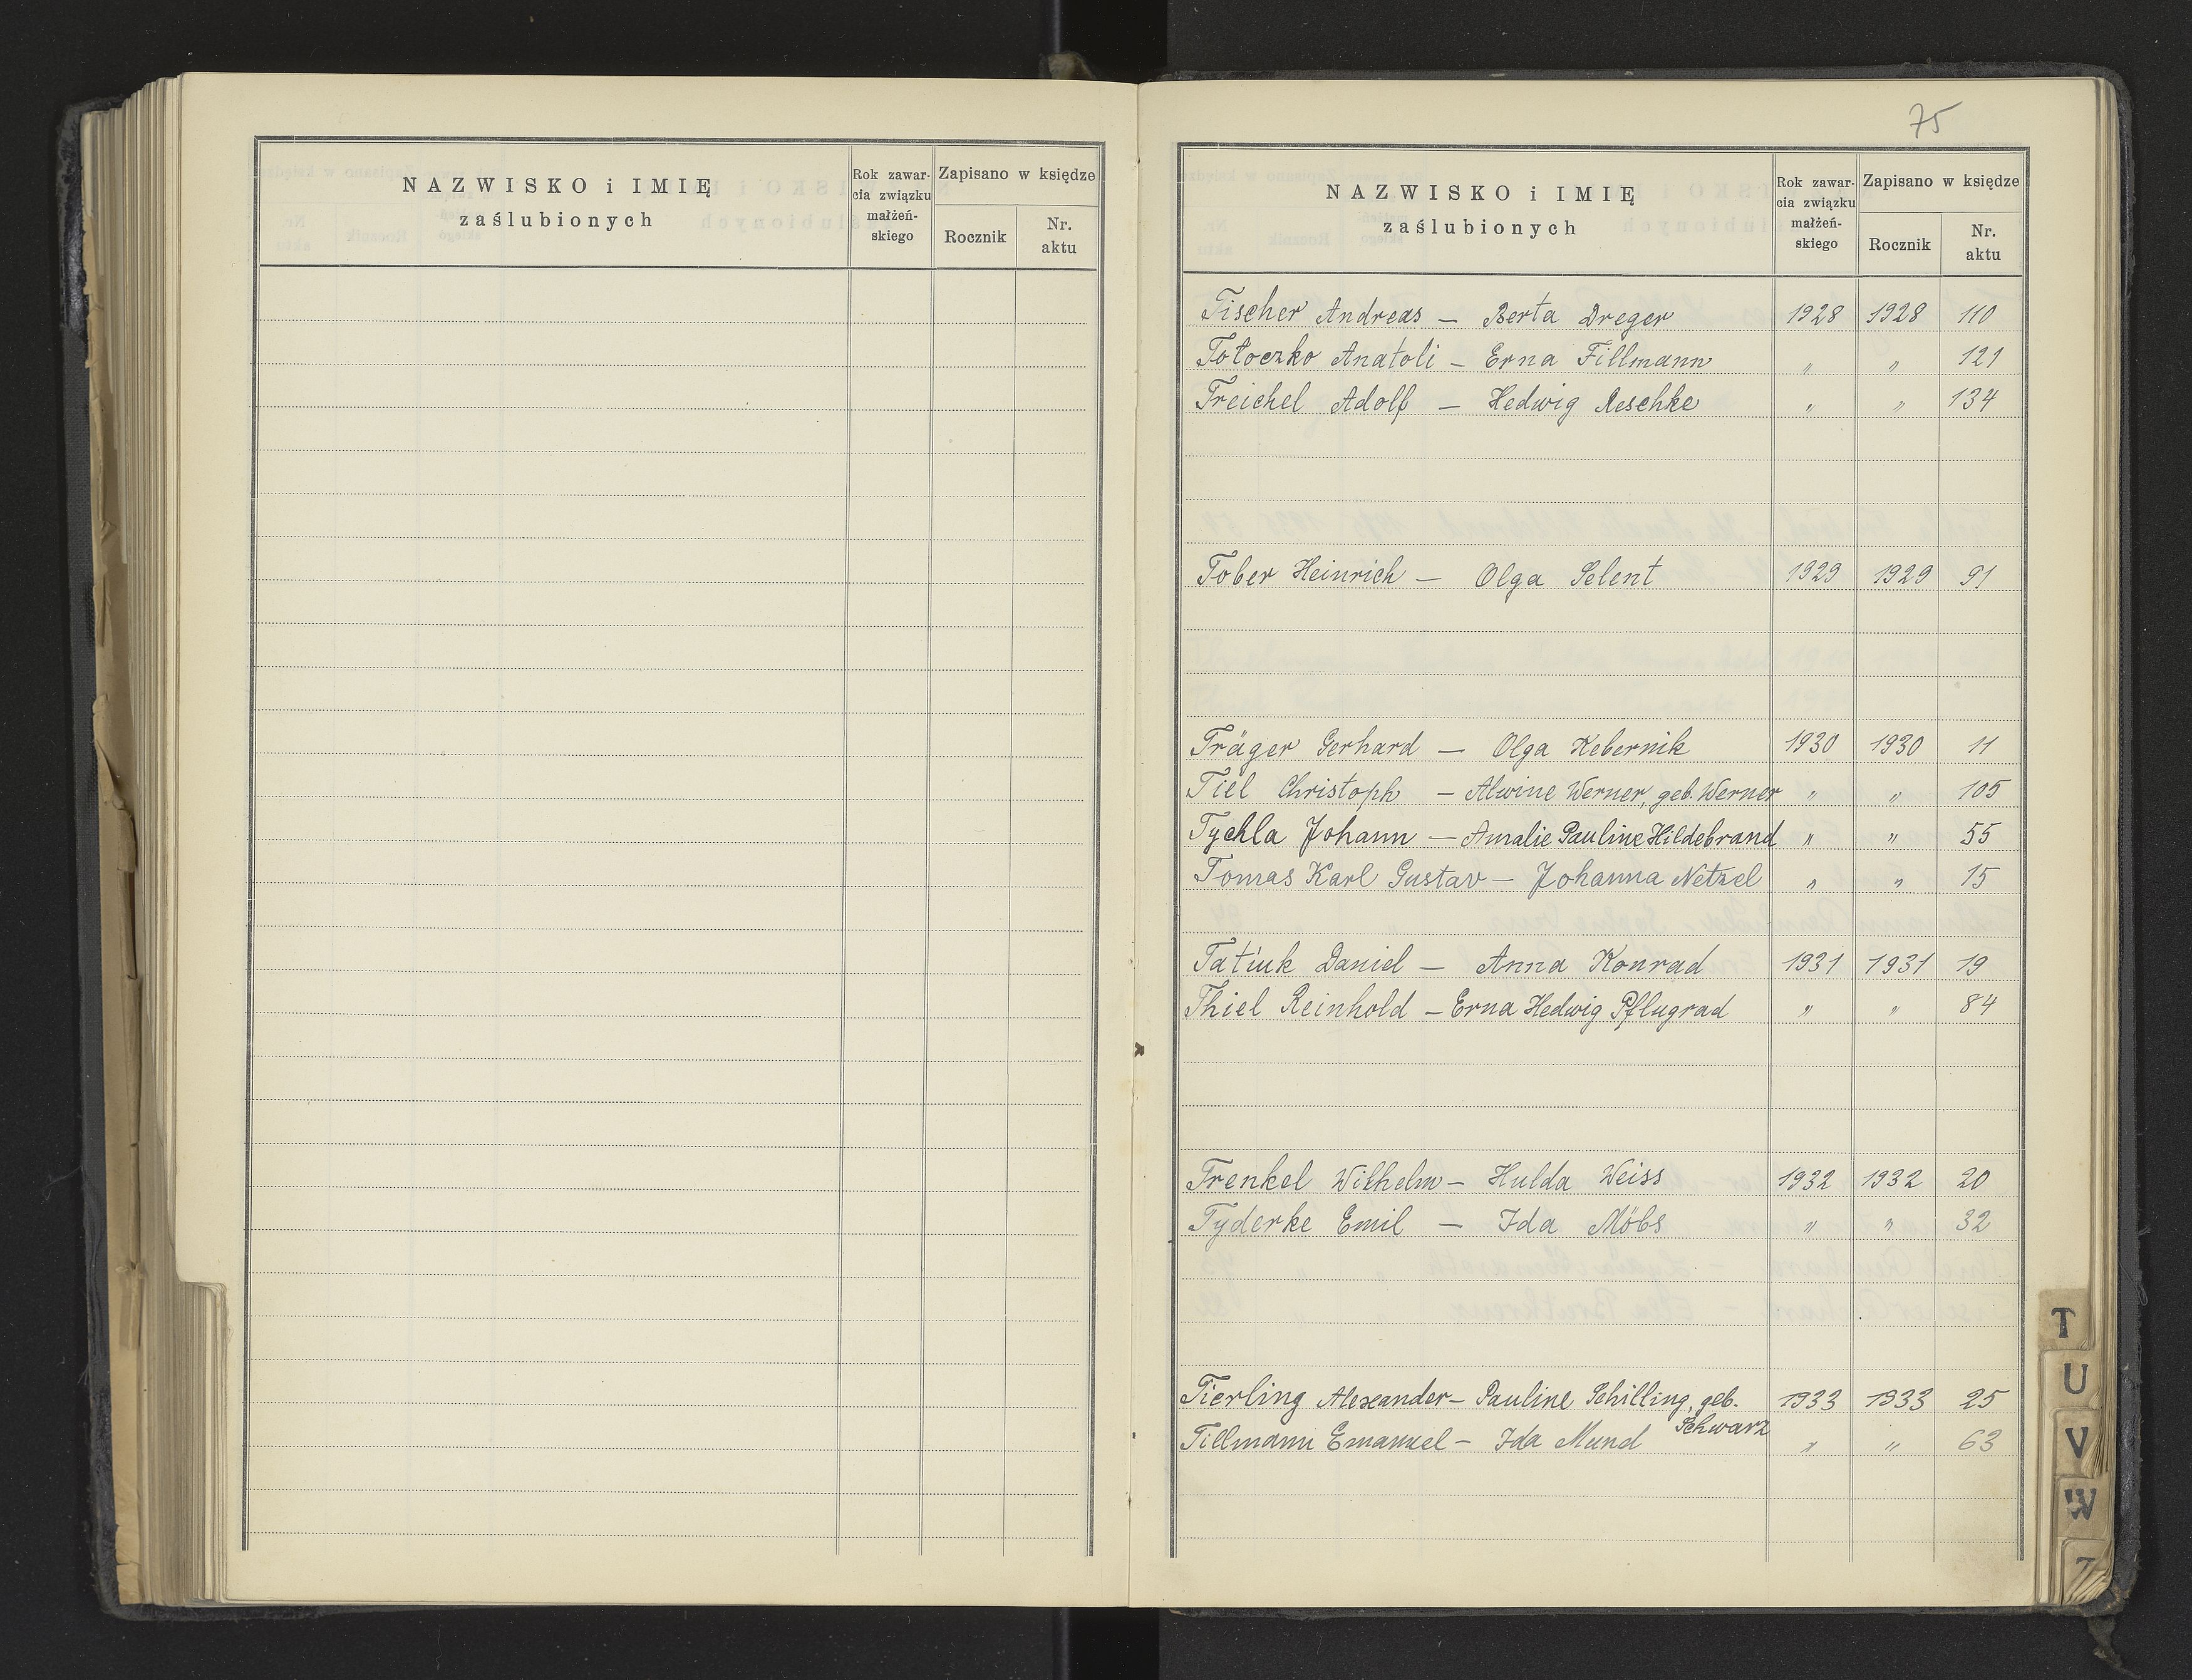 NAZWISKO i IMIĘ
zaślubionych
Rok zawar-
cia związku
małżeń-
skiego
Zapisano w księdze
Rocznik
Nr.
aktu
75
NAZWISKO i IMIĘ
zaślubionych
Rok zawar-
cia związku
małżeń-
skiego
Zapisano w księdze
Rocznik
Nr.
aktu
Tischer Andreas — Berta Dreger 1928 1928 110
Tołoczko Anatoli — Erna Fillmann " " 121
Treichel Adolf — Hedwig Reschke " " 134
Tober Heinrich — Olga Selent 1929 1929 91
Träger Gerhard — Olga Kebernik 1930 1930 11
Tiel Christoph — Alwine Werner, geb. Werner " " 105
Tychla Johann — Amalie Pauline Hildebrand " " 55
Tomas Karl Gustav — Johanna Netzel " " 15
Daniel — Anna Konrad 1931 1931 19
Thiel Reinhold — Erna Hedwig Pflugrad " " 84
Trenkel Wilhelm — Hulda Weiss 1932 1932 20
Tyderke Emil — Ida Möbs " " 32
Tierling Alexander — Pauline Schilling, geb. 1933 1933 25
Schwarz
Tillmann Emanuel — Ida Mund " " 63
T
U
V
W
Z